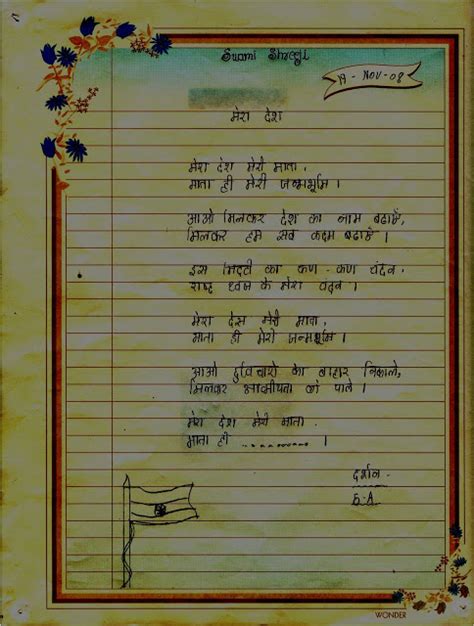 Swami Shreeji
19-NOV-08
मेरा देश
मेरा देश मेरी माता,
माता ही मेरी जन्मभूमि ।
आओ मिलकर देश का नाम बढाऐं,
मिलकर हम सब कदम बढाऐं ।
इस मिट्टी का कण-कण चंदन,
राष्ट्र ध्वज के मेरा वंदन ।
मेरा देस मेरी माता,
माता ही मेरी जन्मभूमि ।
आओ दुर्विचारो को बाहार निकाले,
मिलकर आत्मीयता को पाले ।
मेरा देश मेरी माता,
माता ही .............. ।
दर्शन.
6-A
WONDER